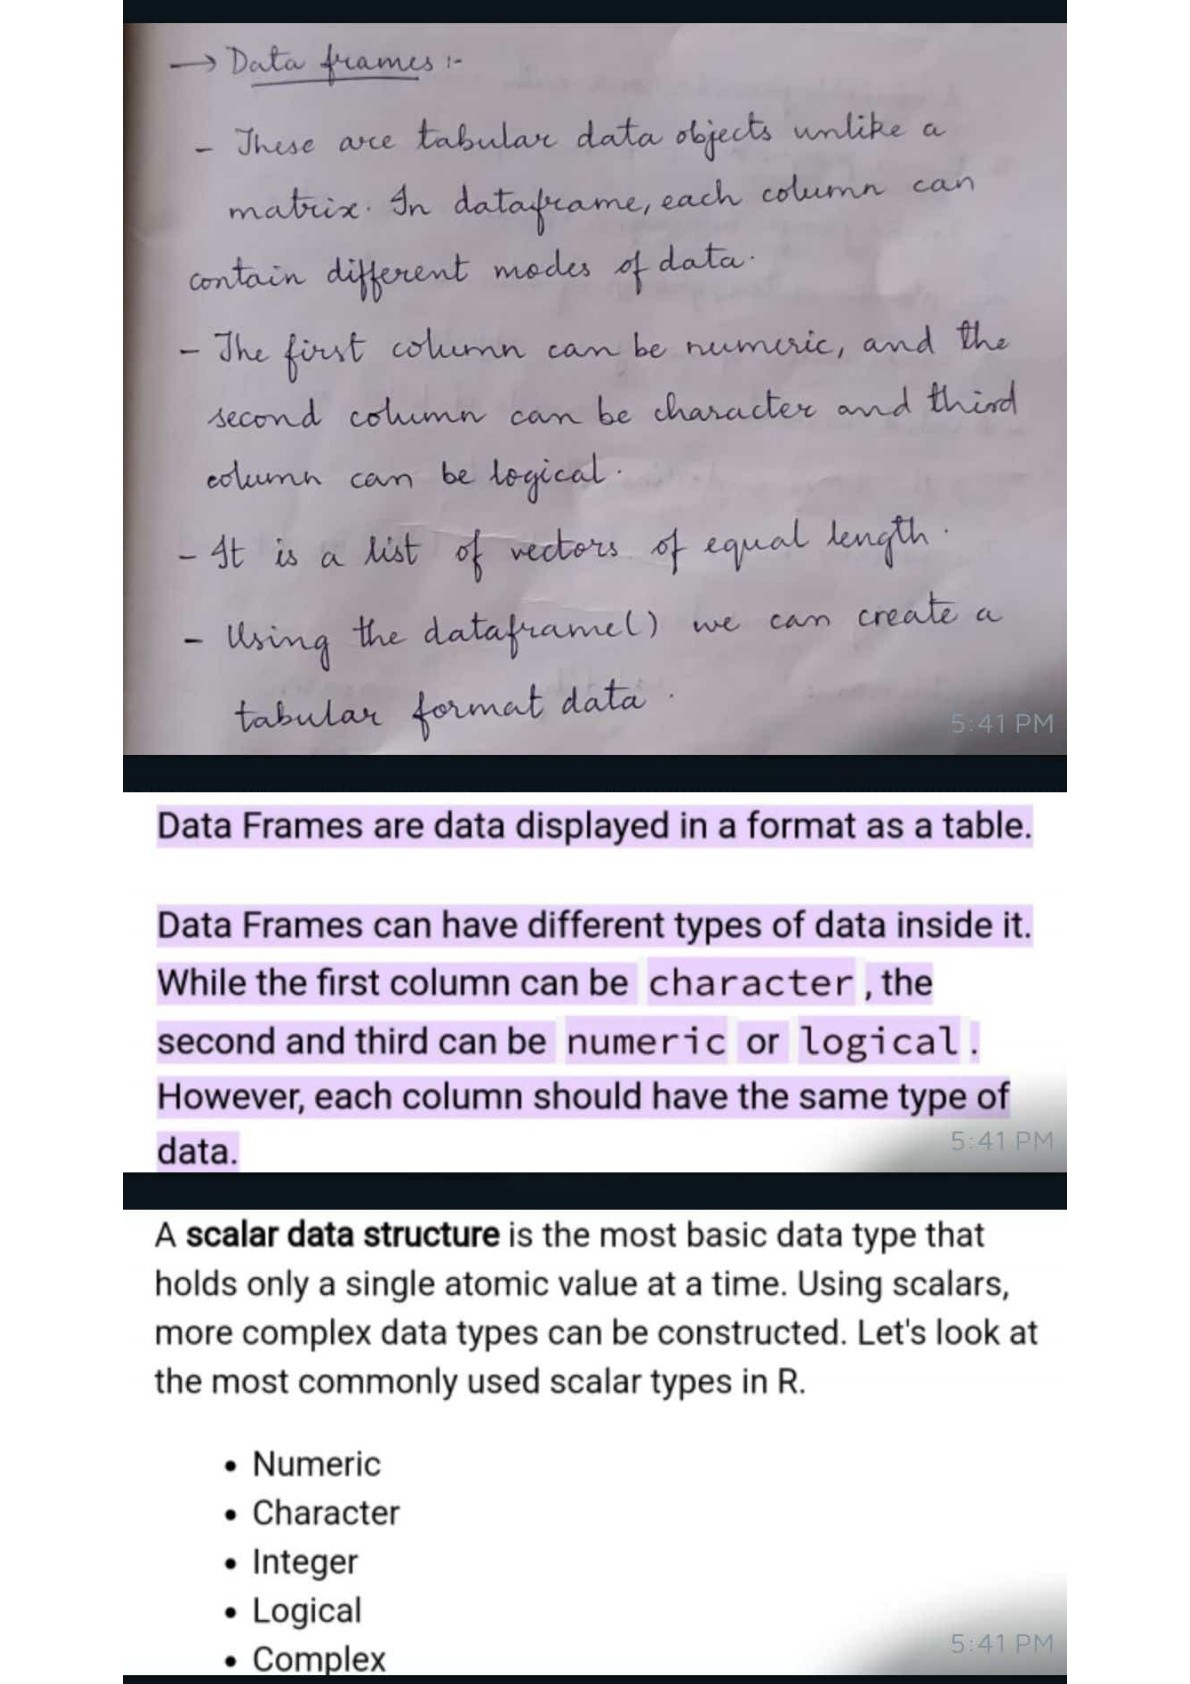 → Data frames :-
- These are tabular data objects unlike a
matrix. In dataframe, each column can
contain different modes of data.
- The first column can be numeric, and the
second column can be character and third
column can be logical.
- It is a list of vectors of equal length.
- Using the dataframe() we can create a
tabular format data.
5:41 PM
Data Frames are data displayed in a format as a table.
Data Frames can have different types of data inside it.
While the first column can be character , the
second and third can be numeric or logical .
However, each column should have the same type of
5:41 PM
data.
A scalar data structure is the most basic data type that
holds only a single atomic value at a time. Using scalars,
more complex data types can be constructed. Let's look at
the most commonly used scalar types in R.
• Numeric
• Character
• Integer
• Logical
5:41 PM
• Complex